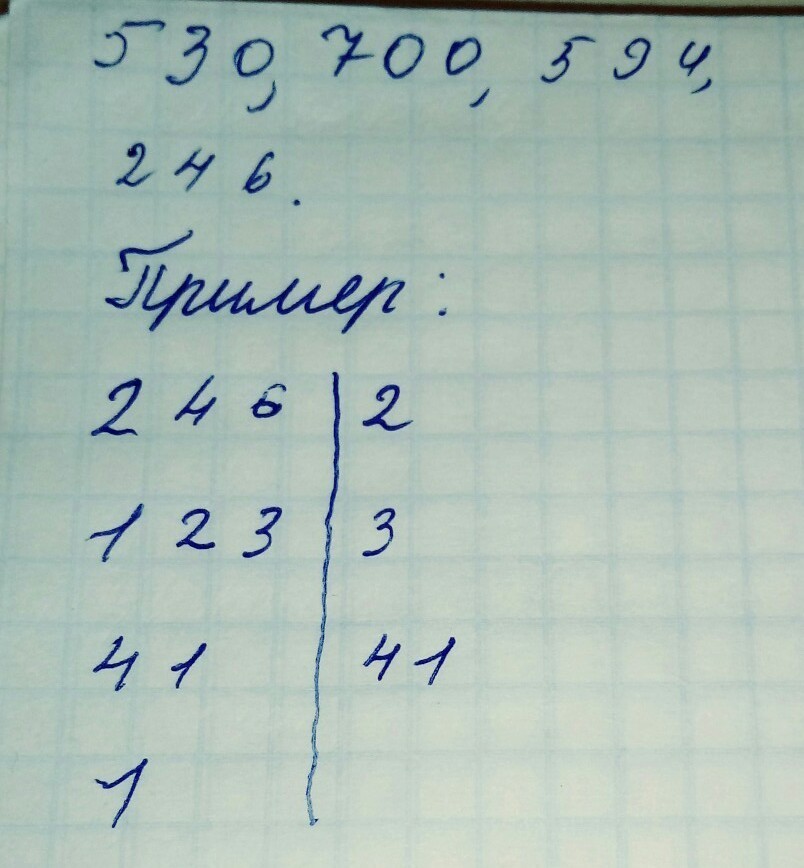 530, 700, 594,
246.
Пример:
246 | 2
123 | 3
41 | 41
1 |